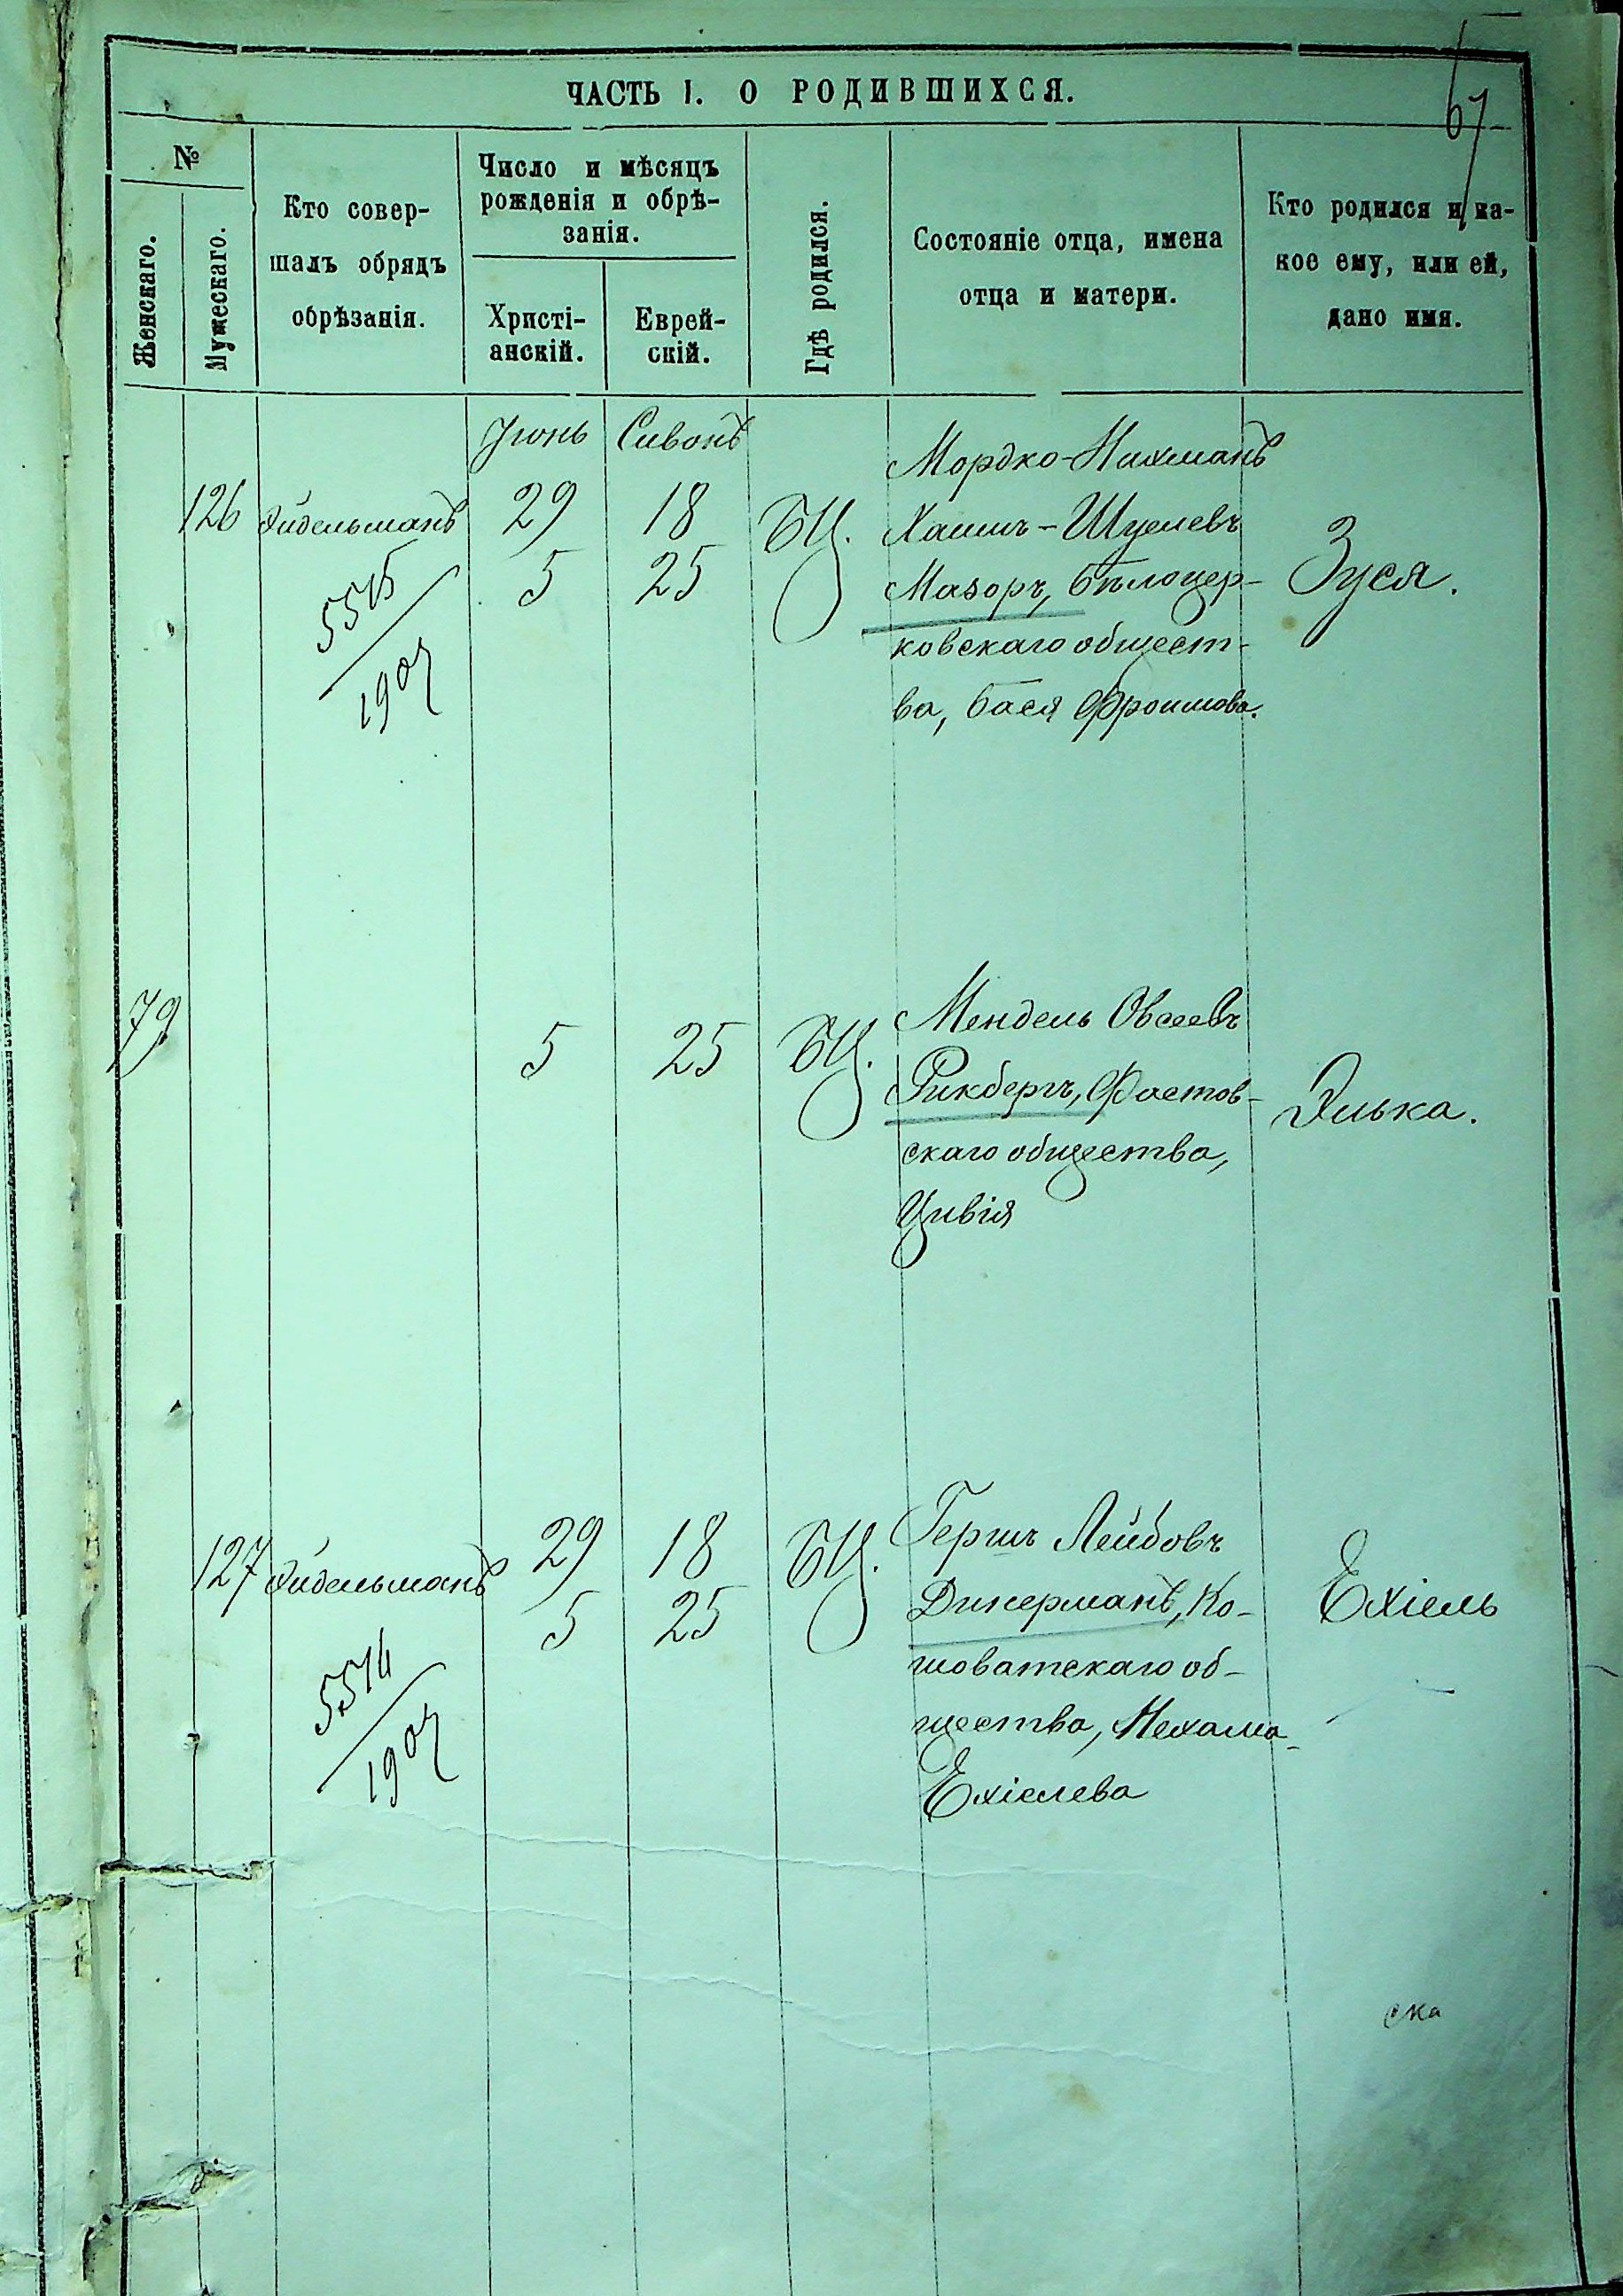 67
ЧАСТЬ I. О РОДИВШИХСЯ.
№
Женскаго.
Мужескаго.
Кто совер-
шалъ обрядъ
обрѣзанія.
Число и мѣсяцъ
рожденія и обрѣ-
занія.
Христі-
анскій.
Еврей-
скій.
Гдѣ родился.
Состояніе отца, имена
отца и матери.
Кто родился и ка-
кое ему, или ей,
дано имя.
Іюнь Сивонъ
126 Эйдельманъ 29 18 БЦ.
5 25
5515
1907
Мордко-Нихманъ
Хаимъ-Шулевъ
Мазоръ, Бѣлоцер-
ковскаго общест-
ва, Бася Фроимова.
Зуся.
79 5 25 БЦ.
Мендель Овсеевъ
Рикбергъ, Фастов-
скаго общества,
Цивія
Элька.
127 Эйдельманъ 29 18 БЦ.
5 25
5514
1907
Гершъ Лейбовъ
Динерманъ, Ко-
шоватскаго об-
щества, Нехама
Ехіелева
Ехіель
ска